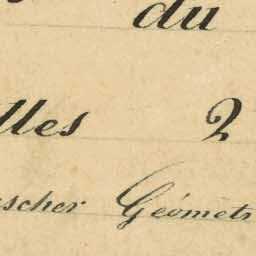 du
lles 2
scher Géomet